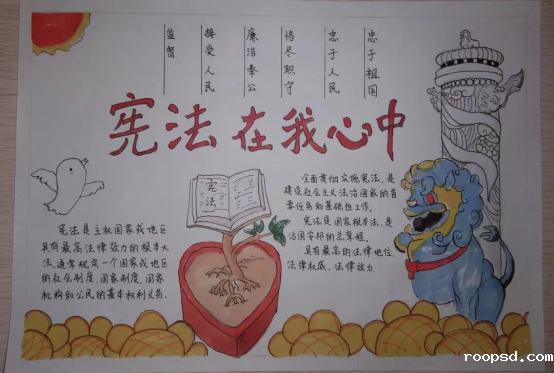 忠于祖国
忠于人民
恪尽职守
廉洁奉公
接受人民
监督
宪法在我心中
宪法
宪法是主权国家或地区
具有最高法律效力的根本大
法,通常规定一个国家或地区
的社会制度、国家制度、国家
机构和公民的基本权利义务。
全面贯彻实施宪法,是
建设社会主义法治国家的首
要任务和基础性工作。
宪法是国家根本法,是
治国安邦的总章程,
具有最高的法律地位,
法律权威、法律效力
roopsd.com